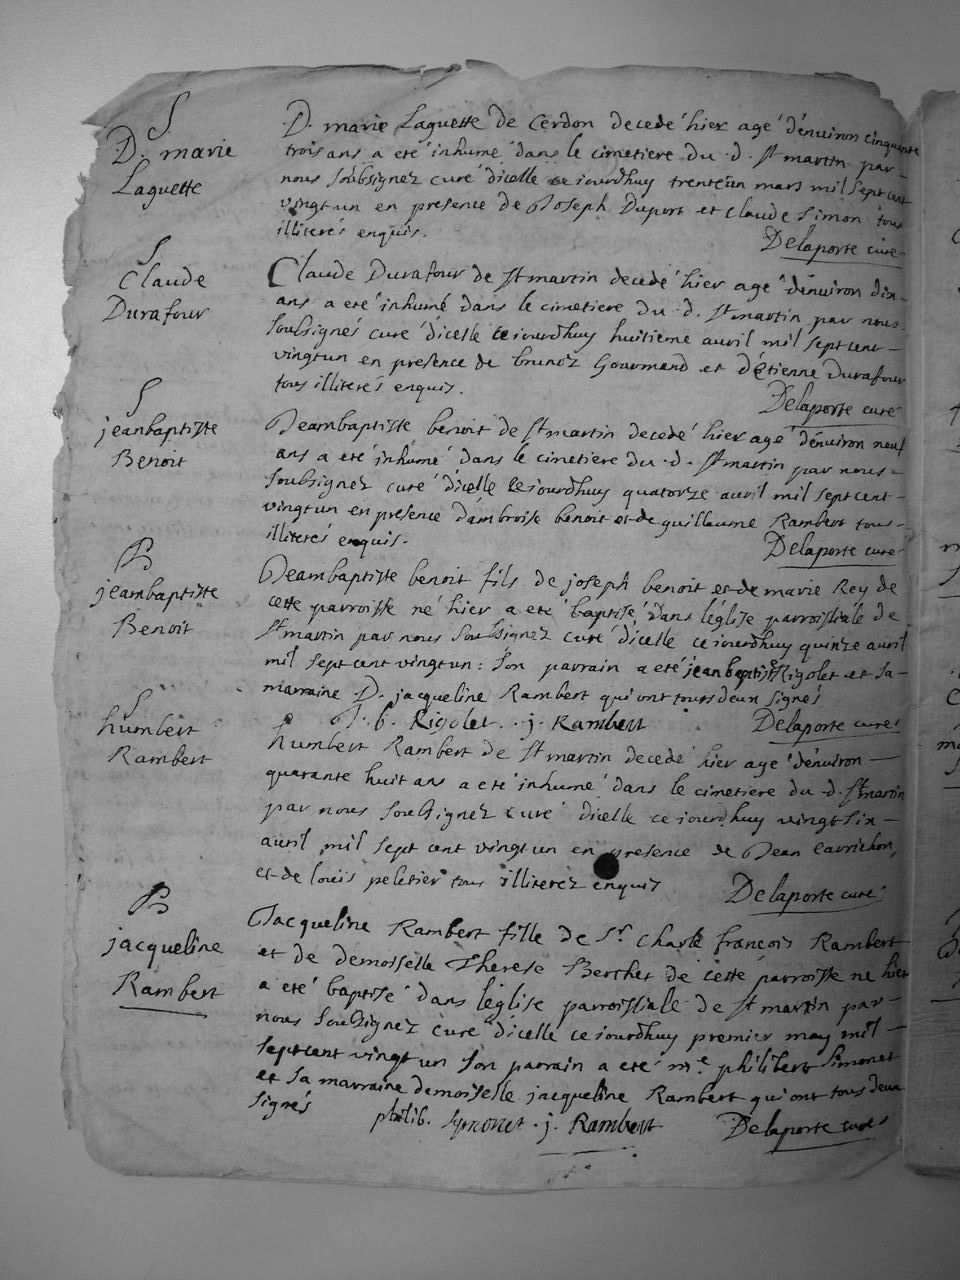 S
D. marie
Laguette
D. marie Laguette de Cerdon decedé hier agé dénuiron cinquante
trois ans a eté inhumé dans le cimetiere du .d. St martin par
nous soubsignez curé dicelle ce iourdhuy trenteun mars mil sept cent
vingt un en presence de Joseph Duport et claude simon tous
illiterés enquis.
Delaporte cure
S
Claude
Durafour
Claude Durafour de St martin decedé hier agé dénuiron dix
ans a eté inhumé dans le cimetiere du .d. St martin par nous
soubsignés curé dicelle ce iourdhuy huitieme auril mil sept cent
vingt un en presence de brunoz Gourmand et détienne Durafour
tous illiterés enquis.
Delaporte curé
S
jeanbaptiste
Benoit
Jeambaptiste benoit de St martin decedé hier agé dénuiron neuf
ans a eté inhumé dans le cimetiere du .d. St martin par nous
soubsignez curé dicelle ce iourdhuy quatorze auril mil sept cent
vingt un en presence dambroise benoit et de guillaume Rambert tous
illiterés enquis.
Delaporte cure
B
jeambaptiste
Benoit
Jeambaptiste benoit fils de joseph benoit et de marie Rey de
cette parroisse né hier a eté baptisé dans léglise parroissiale de
St martin par nous soubsignez curé dicelle ce iourdhuy quinze auril
mil sept cent vingt un : son parrain a eté jeanbaptiste Rigolet et sa
marraine .D. jacqueline Rambert qui ont tous deux signés
J. b. Rigolet . j. Rambert Delaporte curé
S
humbert
Rambert
humbert Rambert de St martin decedé hier agé dénuiron
quarante huit ans a eté inhumé dans le cimetiere du .d. St martin
par nous soubsignez curé dicelle ce iourdhuy vingt six
auril mil sept cent vingt un en presence de Jean Carrichon,
et de loüis peletier tous illiterez enquis
Delaporte curé
B
jacqueline
Rambert
Jacqueline Rambert fille de Sr. Charle françois Rambert
et de demoiselle Therese Berchet de cette parroisse ne hier
a eté baptisé dans léglise parroissiale de St martin par
nous soubsignez curé dicelle ce iourdhuy premier may mil
septcent vingt un son parrain a eté me. philibert Simonet
et sa marraine demoiselle jacqueline Rambert qui ont tous deux
signés philib. symonet . j. Rambert Delaporte curé